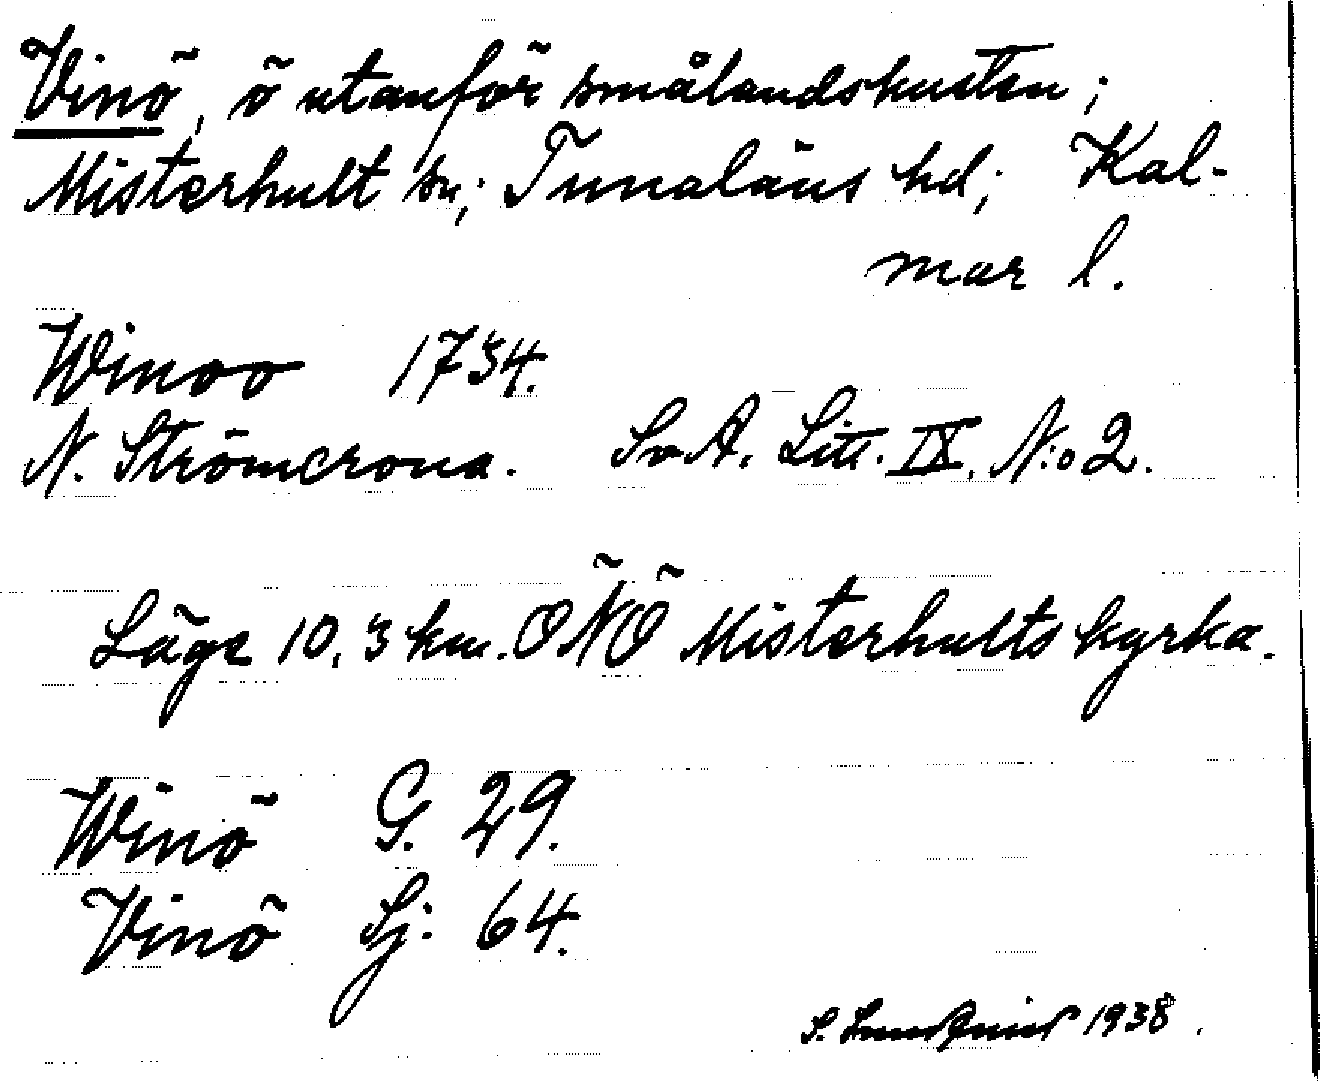 Vinö, ö utanför smålandskusten;
Misterhult sn; Tunaläns hd; Kal-
mar l.
Winoo 1734.
N. Strömcrona. Sv A. Litt. IX, N:o 2.
Läge 10,3 km. ÖNÖ Misterhults kyrka.
Winö G. 29.
Vinö Sj. 64.
S. Lundqvist 1938.